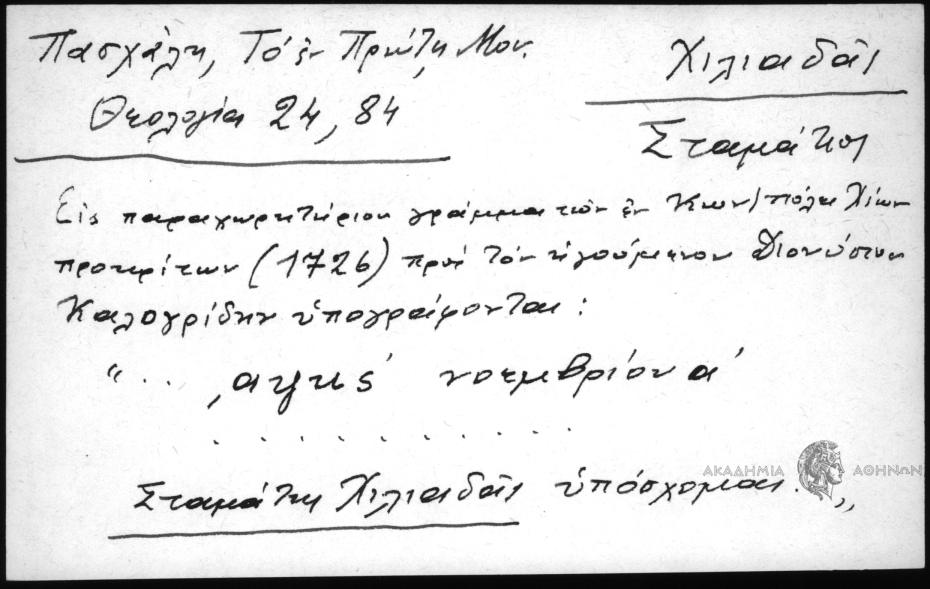 Πασχάλη, Τό ἐν Πρώτῃ Μον.
Θεολογία 24, 84
Χιλιαδᾶς
Σταμάτης
Εἰς παραχωρητήριον γράμμα τῶν ἐν Κων/πόλει Χίων
προκρίτων (1726) πρός τόν ἡγούμενον Διονύσιον
Καλογρίδην ὑπογράφονται:
"... ͵αψκς΄ νοεμβρίου α΄
. . . . . . . . . . . .
Σταμάτης Χιλιαδᾶς ὑπόσχομαι.„
ΑΚΑΔΗΜΙΑ ΑΘΗΝΩΝ